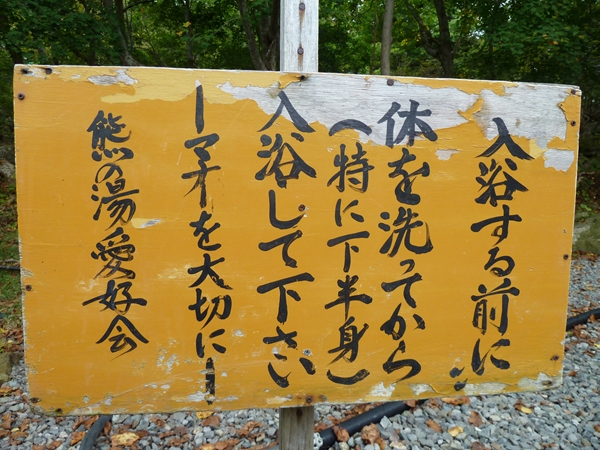 入浴する前に、
体を洗ってから
(特に下半身)
入浴して下さい
ーマナーを大切にー
熊の湯愛好会